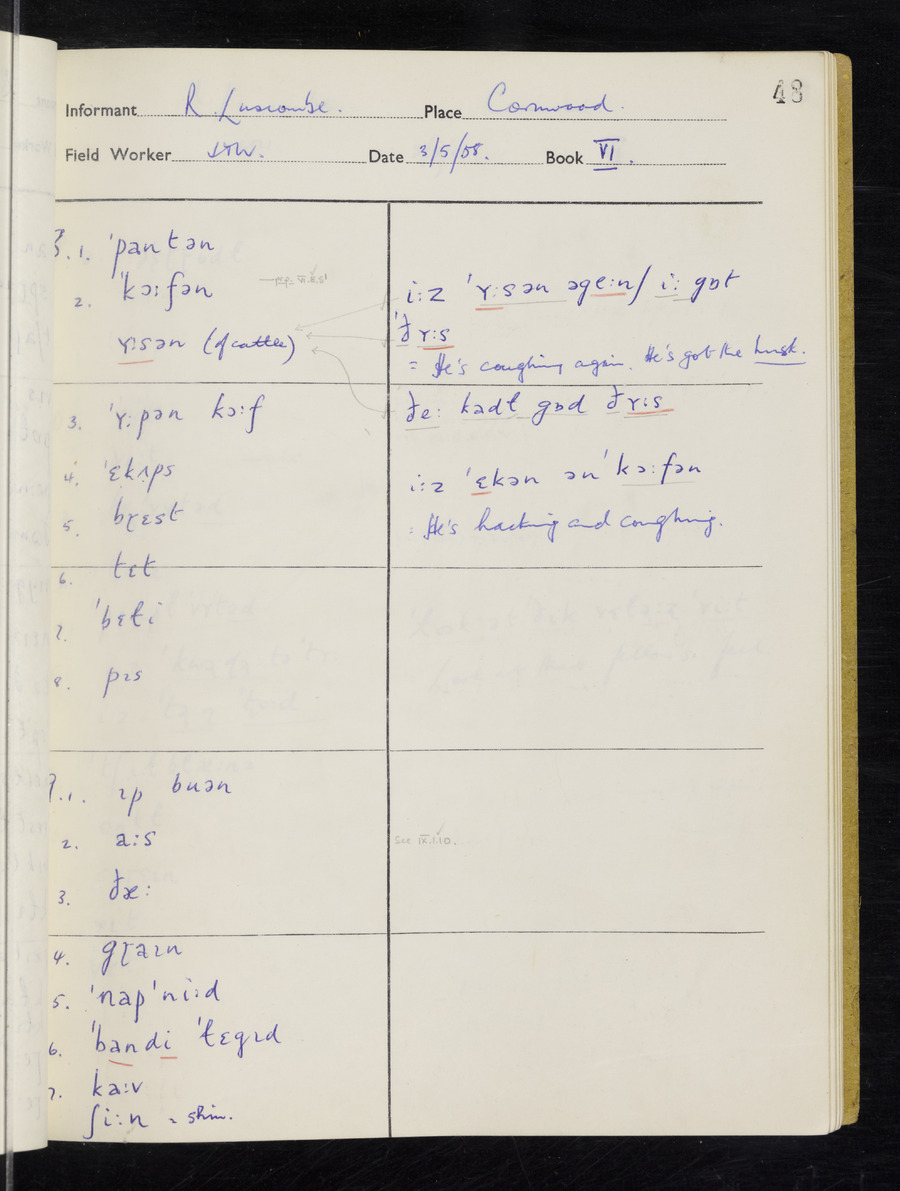 48
Informant R. Luscombe. Place Cornwood.
Field Worker Date 3/5/58. Book VI.
8.1. ˈpantən
2. ˈkɔːfən
ʏːsən (of cattle)
iːz ˈʏːsən əgeːn/ iː gɒt
ˈðʏːs
= He's coughing again. He's got the husk.
3. ˈʏːpən kɔːf
ðeː kədl gɒd ðʏːs
4. ˈɛkʌps
iːz ˈɛkən ən ˈkɔːfən
5. bɽɛst
= He's hacking and coughing.
6. tɛt
7. ˈbɛti
8. pɪs
9.1. ɪp buən
2. aːs
See IX.1.10.
3. ðæː
4. gɽaɪn
5. ˈnapˈniːd
6. ˈbandi ˈlɛgɪd
7. kaːv
ʃiːn = shin.